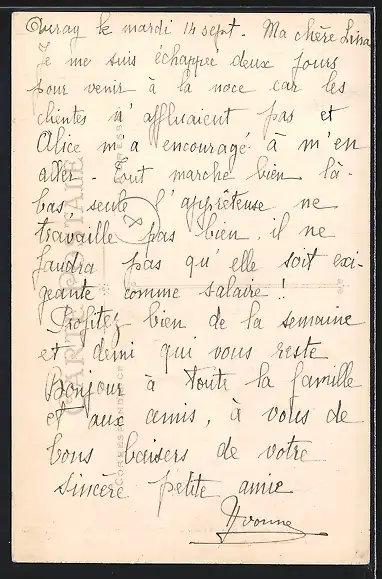 Auray le mardi 14 sept. Ma chère Lina
Je me suis échappée deux jours
pour venir à la noce car les
clientes n'affluaient pas et
Alice m'a encouragé à m'en
aller. Tout marche bien là-
bas seule l'apprêteuse ne
travaille pas bien il ne
faudra pas qu'elle soit exi-
geante comme salaire !
Profitez bien de la semaine
et demi qui vous reste
Bonjour à toute la famille
et aux amis, à vous de
bons baisers de votre
sincère petite amie
Yvonne
CARTE POSTALE
CORRESPONDANCE
ADRESSE